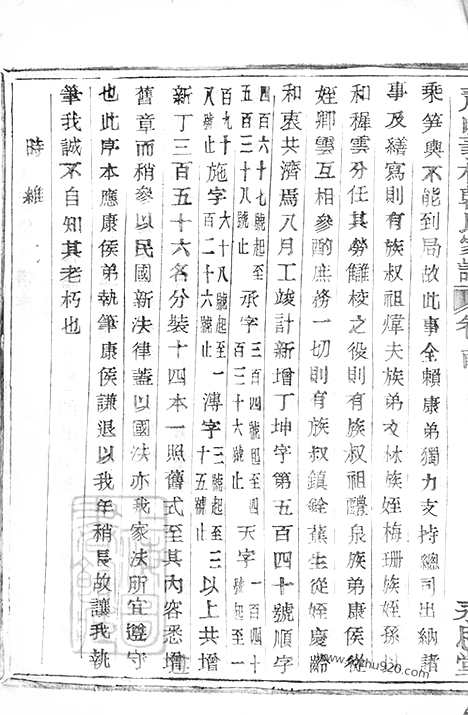 乘筍輿不能到局故此事全賴康弟獨力支持總司出納諸
事及繕寫則有族叔祖煒夫族弟文林族姪梅珊族姪孫
和樨雲分任其勞讎校之役則有族叔祖醴泉族弟康侯
姪卿雲互相參酌庶務一切則有族叔鎮銓蕙生從姪慶齡
和衷共濟焉八月工竣計新增丁坤字第五百四十號順字
四百六十七號起至五百八十號止承字三百四號起至四百三十六號止天字五百三號起至一
百九十八號止施字六十八號起至百二十六號止溥字三號起至三十五號止以上共增
新丁三百五十六名分裝十四本一照舊式至其內容悉增
舊章而稍參以民國新法律蓋以國法亦我家法所宜遵守
也此序本應康侯弟執筆康侯謙退以我年稍長故讓我執
筆我誠不自知其老朽也
時維